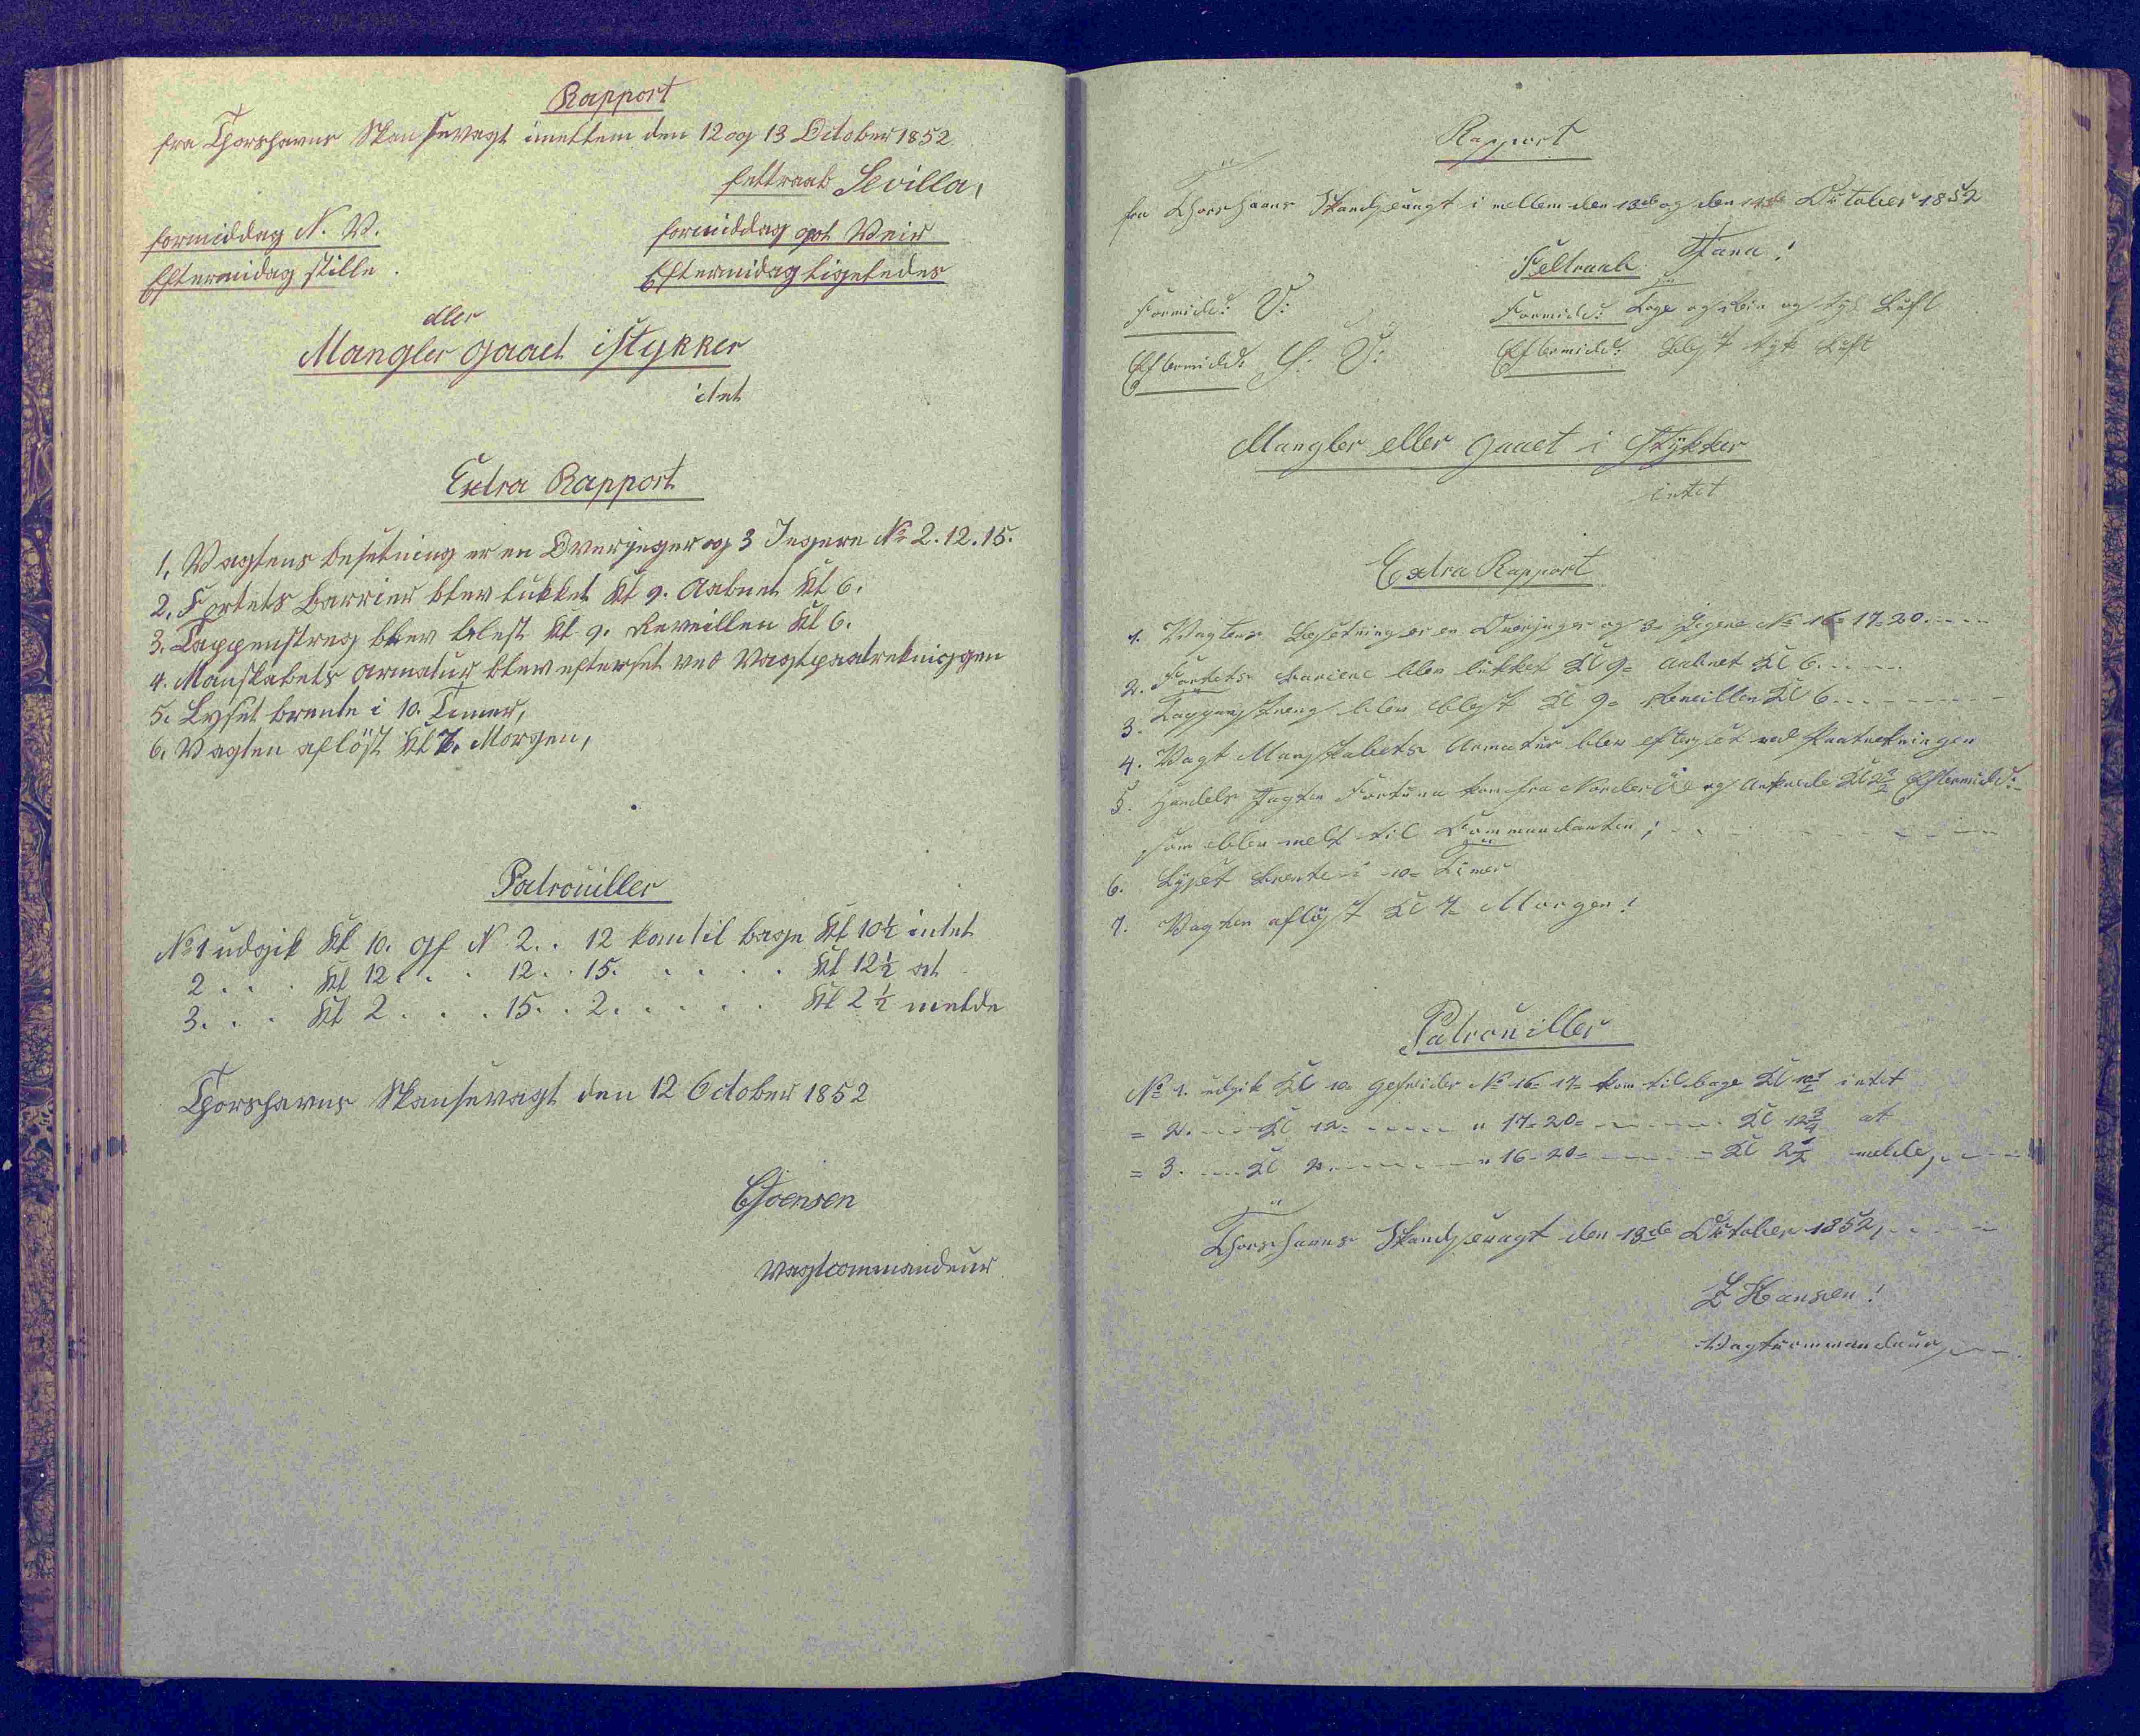 Rapport
fra Thorshavns Skansevagt imellem den 12 og 13 October 1852.
feltraab Sevilla,
formiddag N. V.
formiddag got Veir
Eftermidag stille.
Eftermidag ligeledes
eller
Mangler gaaet istykker
itet
Extra Rapport
1, Vagtens besetning er en Overjeger og 3 Jegere No 2. 12. 15.
2, Fortets barrier blev lukket Kl 9. Aabnet Kl 6.
3, Tappenstreg blev blest Kl 9. Reveillen Kl 6.
4. Manskabets Armatur blev efterset ved Vagtpaatrekninggen
5. Lyset brente i 10. Timer,
6. Vagten aflöst Kl 7. Morgen,
Patrouiller
No 1 udgik Kl 10. gf N 2. . 12 kom til bage Kl 10½ intet
2 . . . Kl 12 . . . 12. . 15. . . . . . Kl 12½ at
3. . . Kl 2 . . . 15. . 2. . . . . Kl 2½ melde
Thorshavns Skansevagt den 12 October 1852
Joensen
Vagtcommandeur
Rapport
fra Thorshavns Skandsevagt i mellem den 13de og den 14de October 1852
Feltraab Tana!
Formidd: V:
Formidd: Taage og Rein og tyk Luft
Eftermidd: S: V:
Eftermidd: blest tyk Luft
Mangler eller gaaet i Stykker
intet
Extra Rapport
1. Vagtens Besetning er en Overjeger og 3 Jegere No 16= 17= 20.
2. Fortets bariere blev lukket Kl 9= aabnet Kl 6.
3. Tappenstreng blev blest Kl 9= Reveillen Kl 6.
4. Vagt Mandskabets Armatur blev efterset ved Paatrekningen
5. Handels Jagten Fortuna kom fra Norder Öe og Ankrede Kl 2½ Eftermidd:
som blev melt til Commandanten;
6. Lyset brente i 10= Timer
7. Vagten aflöst Kl 7= Morgen!
Patrouiller
No 1. udgik Kl 10= gefreider No 16= 17= kom tilbage Kl 10½ intet
= 2. Kl 12= " 17= 20= Kl 12¾ at
= 3. Kl 2. " 16= 20= Kl 2½ melde,
Thorshavns Skandsevagt den 13de October 1852,
Hansen!
Vagtcommandeur